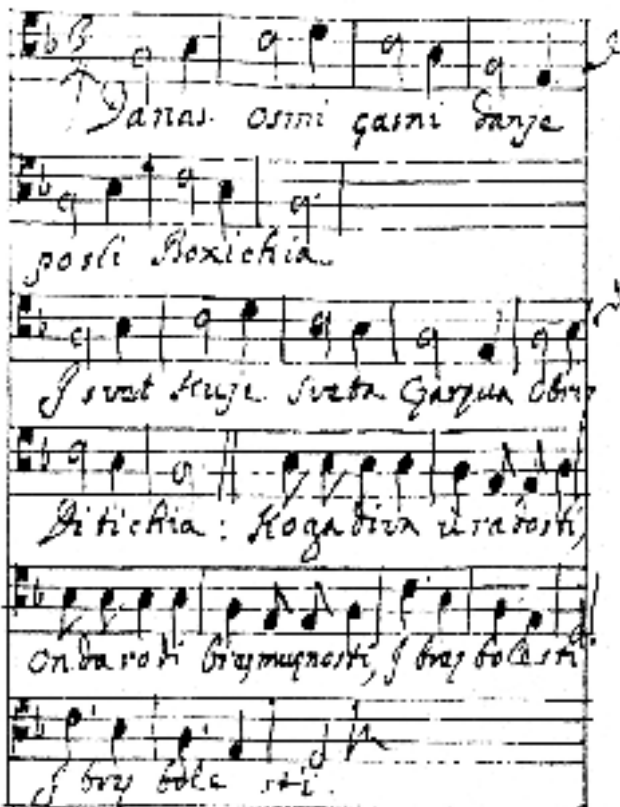 Danas osmi gasni danje
posli Boxichia
I svet kuje sveta Garqua Obrez
Ditichia: Koga diva u radosti,
Onda rodi brez muqnosti, I brez bolesti
I brez bole sti.